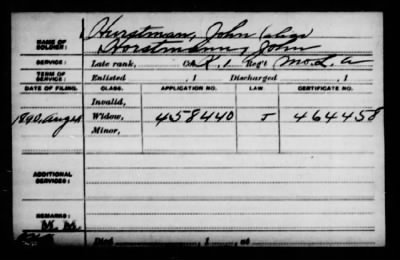 NAME OF SOLDIER: Hurstman, John alias
Horstmann, John
SERVICE: Late rank, Co. K, 1 Reg't Mo. L. A
TERM OF SERVICE: Enlisted , 1 Discharged , 1
DATE OF FILING. CLASS. APPLICATION NO. LAW CERTIFICATE NO.
Invalid,
1890, Aug Widow, 458440 J 464458
Minor,
ADDITIONAL SERVICES:
REMARKS:
Died , 1 , at